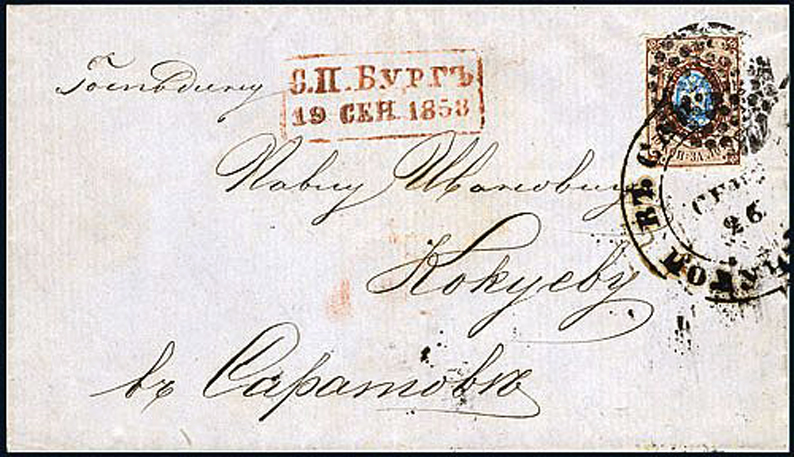 Господину
С.П.БУРГЪ
19 СЕН. 1858
Павлу Ивановичу
Кокуеву
въ Саратовѣ
ВЪ СА
ПОЛУЧ
СЕН
26